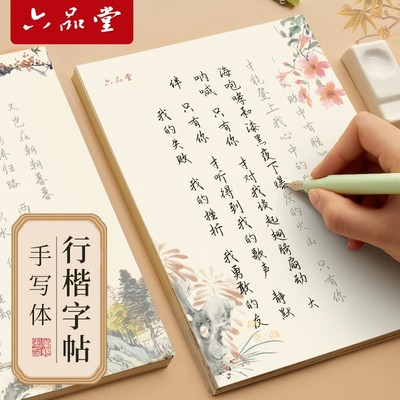 六品堂
六品堂
我的失败 我的挫折 我勇敢的友
伴 只有你 才听得到我的歌声 静默
呐喊 只有你 才对我谈起翅膀扇动 大
海咆哮和漆黑夜下爆发的火山 只有你
才能登上我心中的
又岂在朝朝暮暮
归路
行楷字帖
手写体